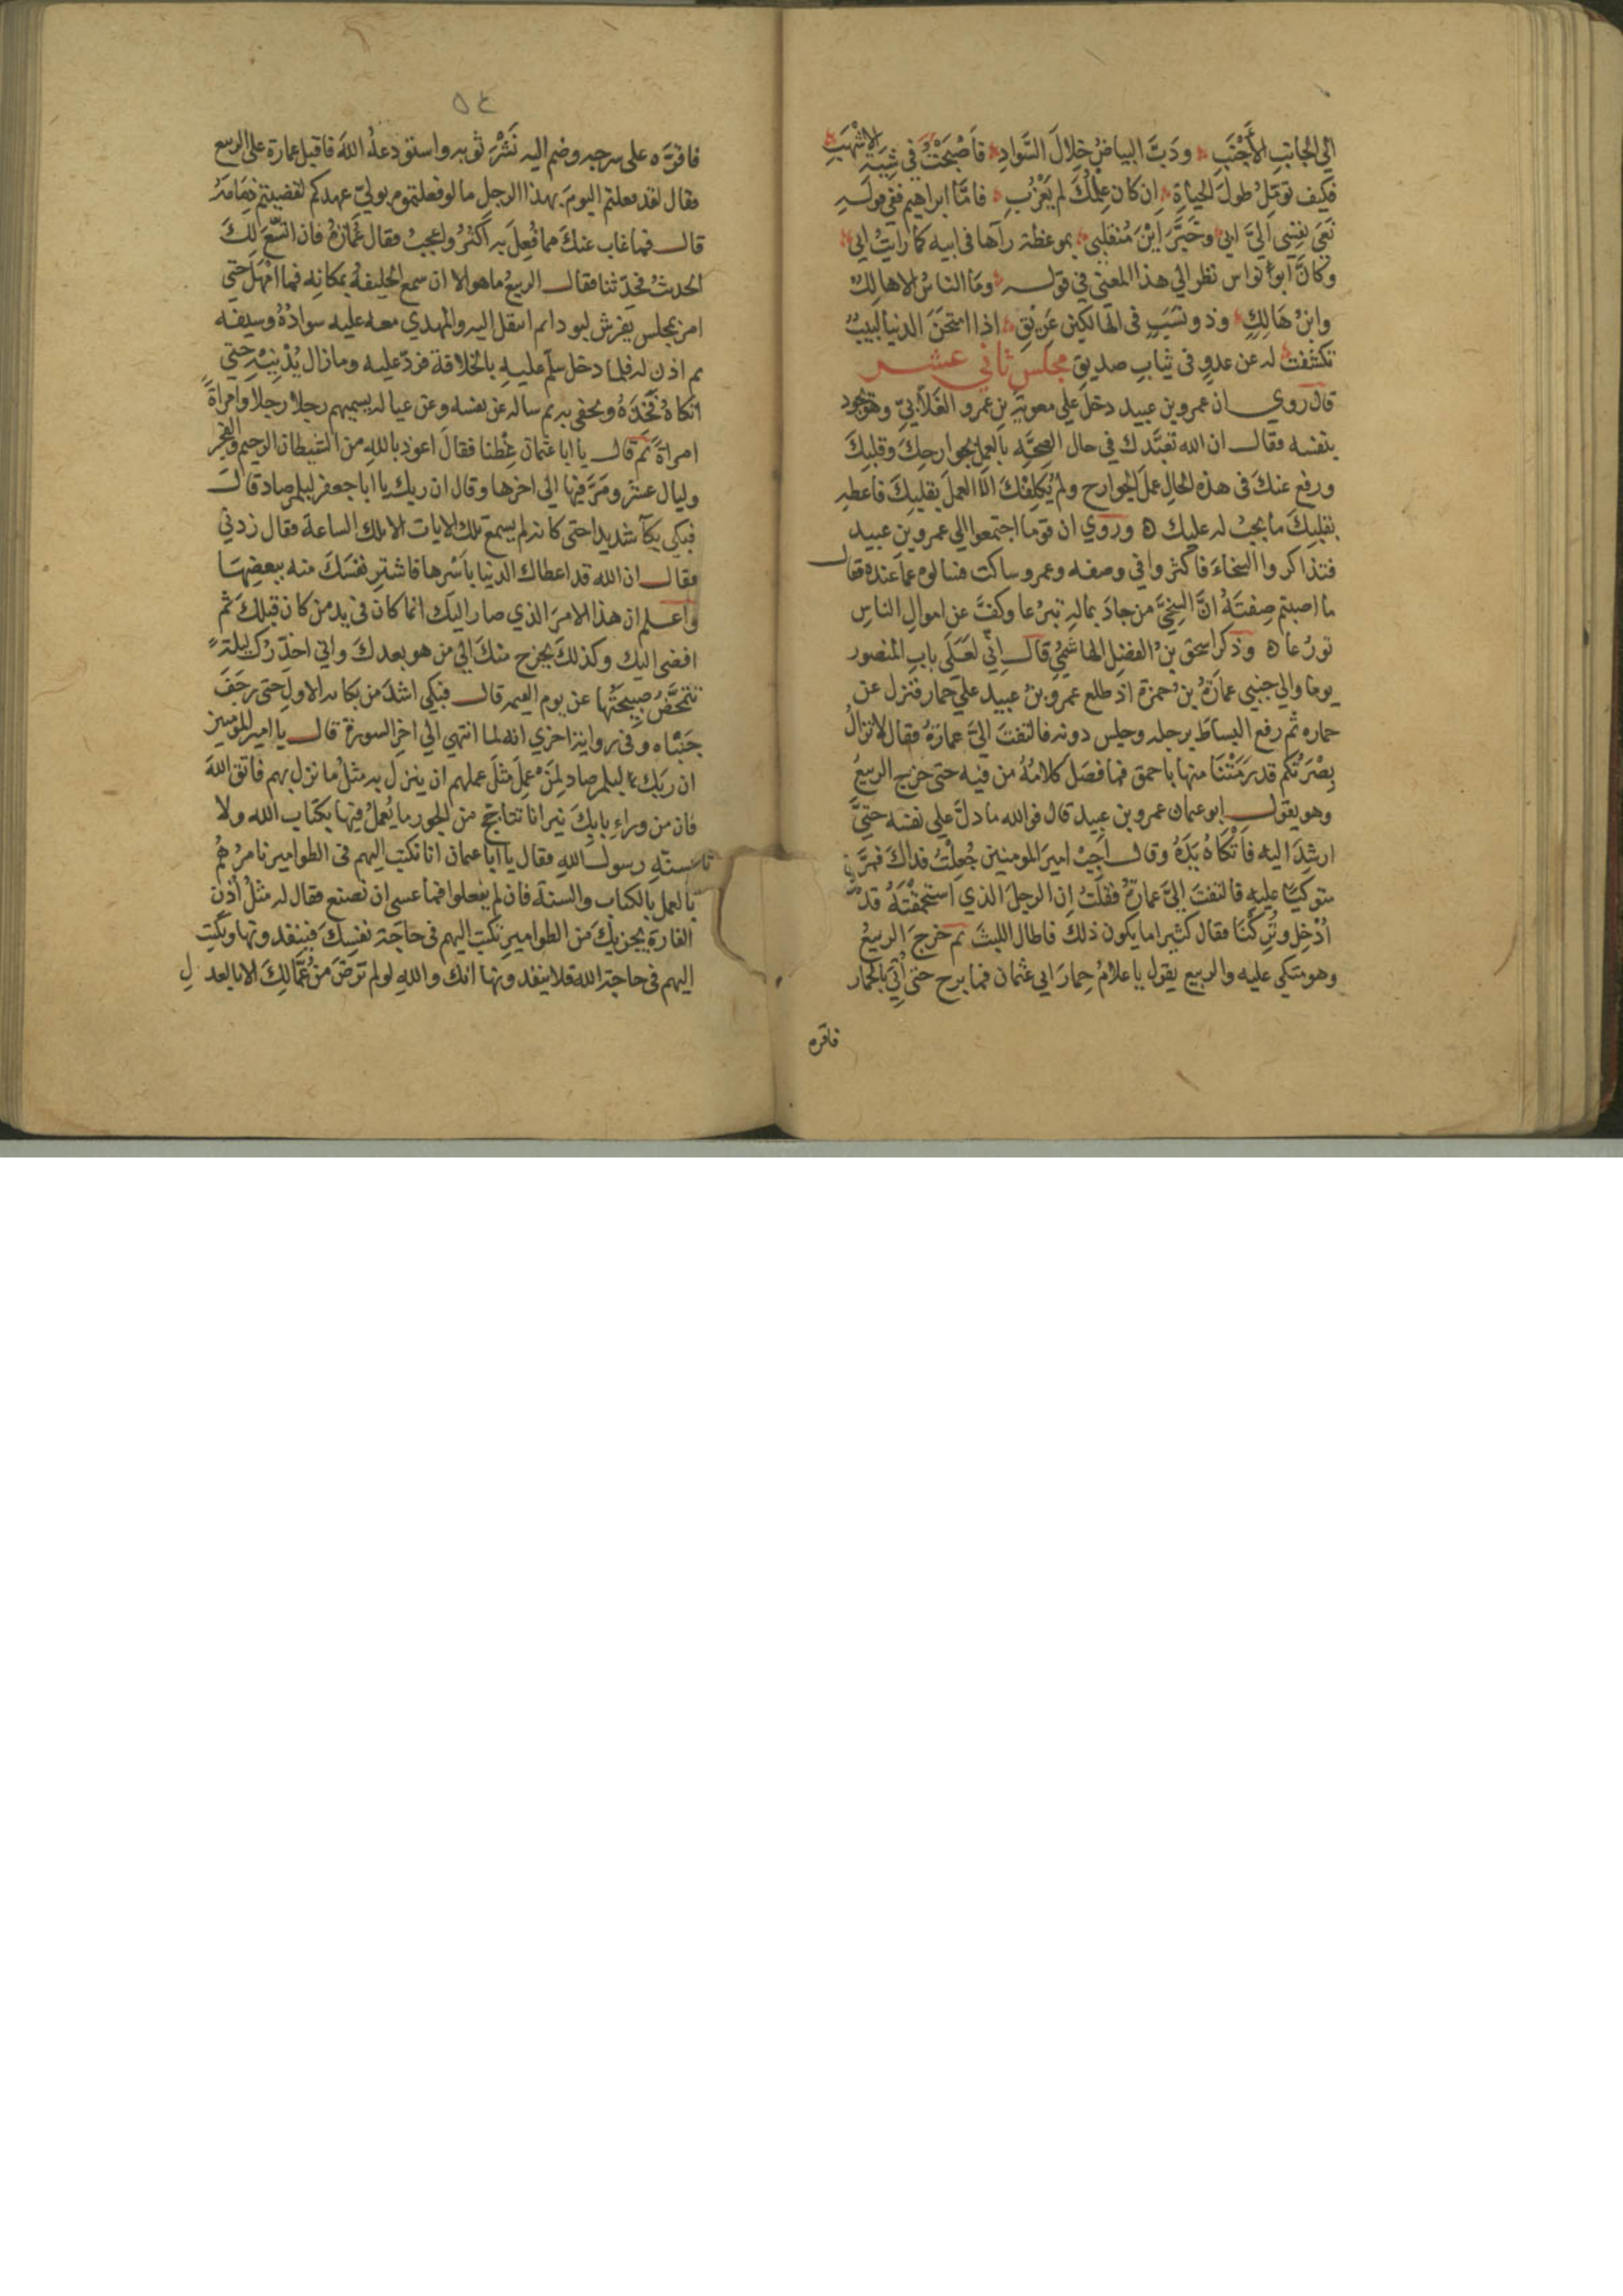 الي الجانب الأجنب ودب البياض خلال السواد فاصبحت في شيبة الاشهب
فكيف تومل طول الحياة ان كان علمك لم يعزب فاما ابراهيم ففي قوله
نعى نفسي الي ابي وخبر اين منقلبي بموعظة رآها في ابيه كما رايت ابي
وكان ابو نواس نظر الي هذا المعني في قوله وما الناس الا هالك
وابن هالك وذو نسب في الهالكين عريق اذا امتحن الدنيا لبيب
تكشفت له عن عدو في ثياب صديق مجلس ثاني عشر
قال روي ان عمرو بن عبيد دخل علي معوية بن عمرو الغلابي وهو يجود
بنفسه فقال ان الله تعبدك في حال الصحة بالعمل بجوارحك وقلبك
ورفع عنك في هذه الحال عمل الجوارح ولم يكلفك الا العمل بقلبك فاعطه
بقلبك ما يجب له عليك ه وروي ان قوما اجتمعوا الي عمرو بن عبيد
فتذاكروا السخاء فاكثروا في وصفه وعمرو ساكت فسالوه عما عنده فقال
ما اصبتم صفته ان السخي من جاد بماله تبرعا وكف عن اموال الناس
تورعا ه وذكر اسحق بن الفضل الهاشمي قال اني لعلى باب المنصور
يوما والي جنبي عمارة بن حمزة اذ طلع عمرو بن عبيد علي حمار فنزل عن
حماره ثم رفع البساط برجله وجلس دونه فالتفت الي عمارة فقال لا تزال
بصرتكم قد رمتنا منها باحمق فما فصل كلامه من فيه حتى خرج الربيع
وهو يقول ابو عثمان عمرو بن عبيد قال فوالله ما دل علي نفسه حتى
ارشد اليه فاتكاه يده وقال اجب امير المومنين جعلت فداك فمر
متوكيا عليه فالتفت الي عمارة فقلت ان الرجل الذي استحمقته قد
ادخل وتركنا فقال كثيرا ما يكون ذلك فاطال اللبث ثم خرج الربيع
وهو متكي عليه والربيع يقول يا غلام حمار ابي عثمان فما برح حتى اتي بالحمار
فاقره
٥٤
فاقره على سرجه وضم اليه نشر ثوبه واستودعه الله فاقبل عمارة على الربيع
فقال لقد فعلتم اليوم بهذا الرجل ما لو فعلتموه بولي عهدكم لقضيتم ذمامه
قال فما غاب عنك مما فعل به اكثر واعجب فقال عمارة فان اتسع لك
الحديث فحدثنا فقال الربيع ما هو الا ان سمع الخليفة بمكانه فما امهل حتى
امر بمجلس يفرش لبودا ثم انتقل اليه والمهدي معه عليه سواده وسيفه
ثم اذن له فلما دخل سلم عليه بالخلافة فرد عليه وما زال يدنيه حتى
اتكاه فخذه وتحفى به ثم ساله عن نفسه وعن عياله يسميهم رجلا رجلا وامراة
امراة ثم قال يا ابا عثمان عظنا فقال اعوذ بالله من الشيطان الرجيم والفجر
وليال عشر ومر فيها الي اخرها وقال ان ربك يا ابا جعفر لبالمرصاد قال
فبكى بكاء شديدا حتى كانه لم يسمع تلك الايات الا تلك الساعة فقال زدني
فقال ان الله قد اعطاك الدنيا باسرها فاشتر نفسك منه ببعضها
واعلم ان هذا الامر الذي صار اليك انما كان في يد من كان قبلك ثم
افضى اليك وكذلك يخرج منك الي من هو بعدك واني احذرك ليلة
تتمخض صبيحتها عن يوم القيمه قال فبكي اشد من بكائه الاول حتى رجف
جنباه وفي رواية اخري انه لما انتهي الي اخر السورة قال يا امير المومنين
ان ربك لبالمرصاد لمن عمل مثل عملهم ان ينزل به مثل ما نزل بهم فاتق الله
فان من وراء بابك نيرانا تتاجج من الجور ما يعمل فيها بكتاب الله ولا
بسنة رسول الله فقال يا ابا عثمان انا نكتب اليهم في الطوامير نامرهم
بالعمل بالكتاب والسنة فان لم يفعلوا فما عسى ان نصنع فقال له مثل اذن
الفارة يجزيك من الطوامير تكتب اليهم في حاجة نفسك فينفذونها وتكتب
اليهم في حاجة الله فلا ينفذونها انك والله لو لم ترض من عمالك الا بالعدل